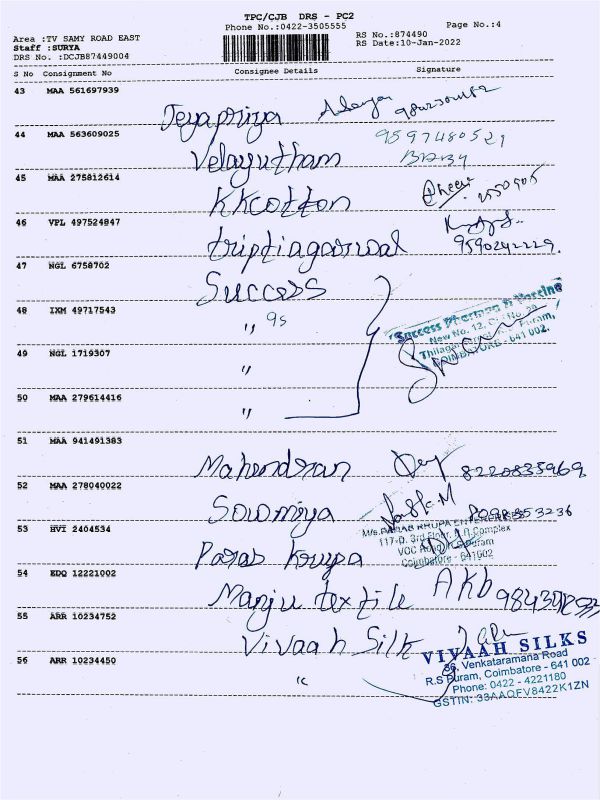 TPC/CJB DRS - PC2
Phone No.:0422-3505555
Page No.:4
Area :TV SAMY ROAD EAST
Staff :SURYA
DRS No. :DCJB87449004
RS No.:874490
RS Date:10-Jan-2022
S No Consignment No Consignee Details Signature
43 MAA 561697939
Jeyapriya
44 MAA 563609025 9597480521
Velayutham BABY
45 MAA 275812614
KKcotton
46 VPL 497524847
triptiagarwal 9590242229.
47 NGL 6758702
Success
48 IXM 49717543
" 95
Success Pharma & Vaccine
New No. 12,
COIMBATORE - 641 002.
49 NGL 1719307
"
50 MAA 279614416
"
51 MAA 941491383
Mahendran 8220835969
52 MAA 278040022
Sowmiya
53 HVI 2404534
M/s. PARAS KRUPA ENTERPRISES
117-D, 3rd Floor, Complex
VOC
Coimbatore - 641002
Paras Krupa
54 EDQ 12221002
Manju textile AKb
55 ARR 10234752
Vivaah Silk
VIVAAH SILKS
56 ARR 10234450
"
36, Venkataramana Road
R.S Puram, Coimbatore - 641 002
Phone: 0422 - 4221180
GSTIN: 33AAQFV8422K1ZN